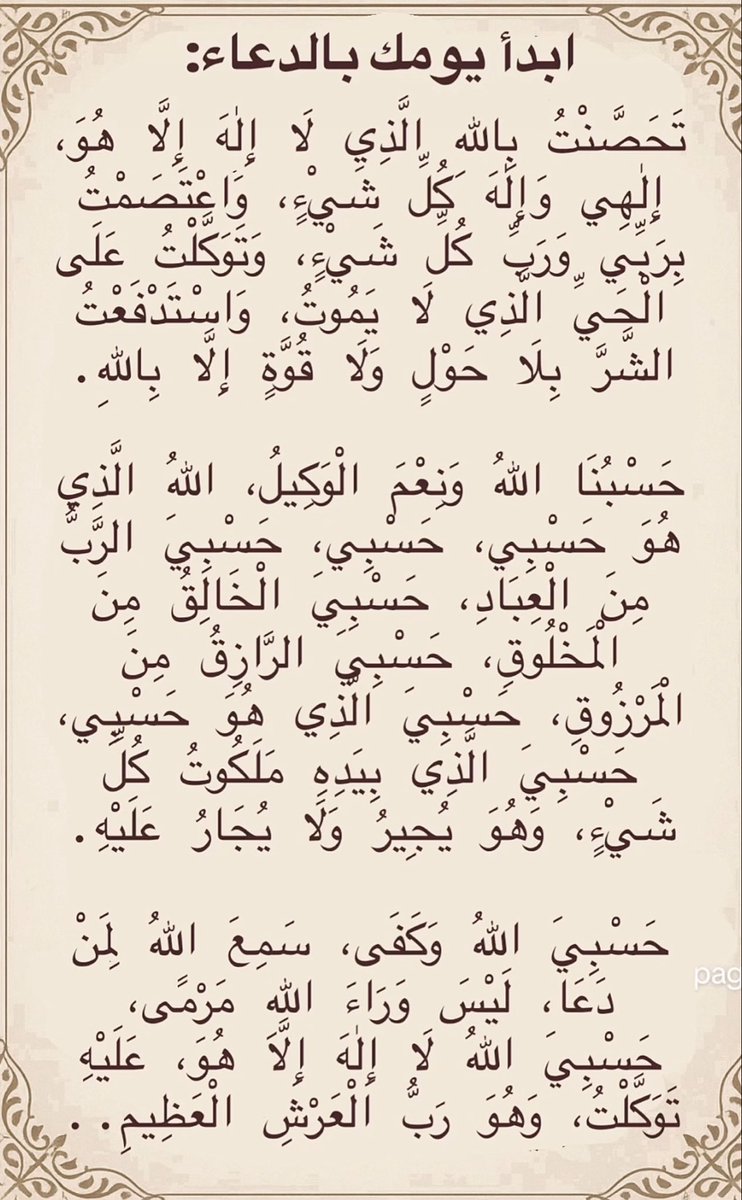 ابدأ يومك بالدعاء:
تَحَصَّنْتُ بِاللهِ الَّذِي لَا إِلٰهَ إِلَّا هُوَ،
إِلٰهِي وَإِلٰهَ كُلِّ شَيْءٍ، وَاعْتَصَمْتُ
بِرَبِّي وَرَبِّ كُلِّ شَيْءٍ، وَتَوَكَّلْتُ عَلَى
الْحَيِّ الَّذِي لَا يَمُوتُ، وَاسْتَدْفَعْتُ
الشَّرَّ بِلَا حَوْلٍ وَلَا قُوَّةٍ إِلَّا بِاللهِ.
حَسْبُنَا اللهُ وَنِعْمَ الْوَكِيلُ، اللهُ الَّذِي
هُوَ حَسْبِي، حَسْبِي، حَسْبِيَ الرَّبُّ
مِنَ الْعِبَادِ، حَسْبِيَ الْخَالِقُ مِنَ
الْمَخْلُوقِ، حَسْبِيَ الرَّازِقُ مِنَ
الْمَرْزُوقِ، حَسْبِيَ الَّذِي هُوَ حَسْبِي،
حَسْبِيَ الَّذِي بِيَدِهِ مَلَكُوتُ كُلِّ
شَيْءٍ، وَهُوَ يُجِيرُ وَلَا يُجَارُ عَلَيْهِ.
حَسْبِيَ اللهُ وَكَفَى، سَمِعَ اللهُ لِمَنْ
دَعَا، لَيْسَ وَرَاءَ اللهِ مَرْمًى،
حَسْبِيَ اللهُ لَا إِلٰهَ إِلَّا هُوَ، عَلَيْهِ
تَوَكَّلْتُ، وَهُوَ رَبُّ الْعَرْشِ الْعَظِيمِ..